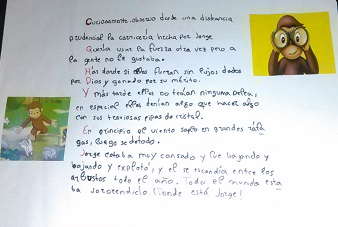 Curiosamente, observo desde una distancia
prudencial la carnicería hecha por Jorge
Quería usar la fuerza otra vez pero a
la gente no le gustaba.
Has donde si ellos fueran sin lujos dados
por Dios y ganado por su mérito.
Y más tarde ellos no tenían ninguna pelea,
en especial ellos tenían algo que hacer algo
con sus traviosas pipas de cristal.
En principio el viento sopló en grandes ráfa
gas, luego se detodo.
Jorge estaba muy cansado y fue bajando y
bajando y explotó, y el se escondía entre los
arbustos todo el año. Todo el mundo esta
ba sorprendido. ¡Donde está Jorge!